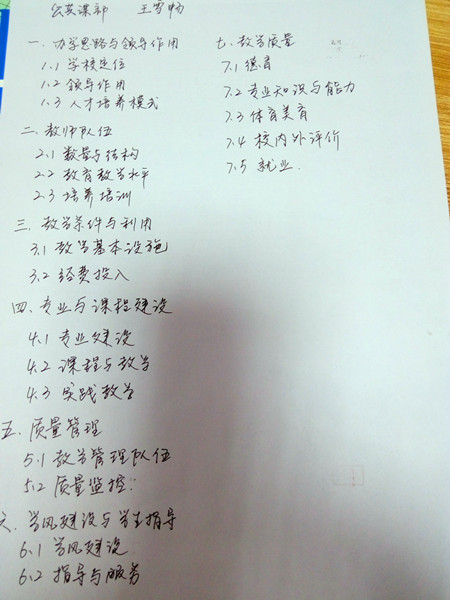 公共课部 王雪畅
一. 办学思路与领导作用
1.1 学校定位
1.2 领导作用
1.3 人才培养模式
二. 教师队伍
2.1 数量与结构
2.2 教育教学水平
2.3 培养培训
三. 教学条件与利用
3.1 教学基本设施
3.2 经费投入
四. 专业与课程建设
4.1 专业建设
4.2 课程与教学
4.3 实践教学
五. 质量管理
5.1 教学管理队伍
5.2 质量监控.
六. 学风建设与学生指导
6.1 学风建设
6.2 指导与服务
七. 教学质量
7.1 德育
7.2 专业知识与能力
7.3 体育美育
7.4 校内外评价
7.5 就业.